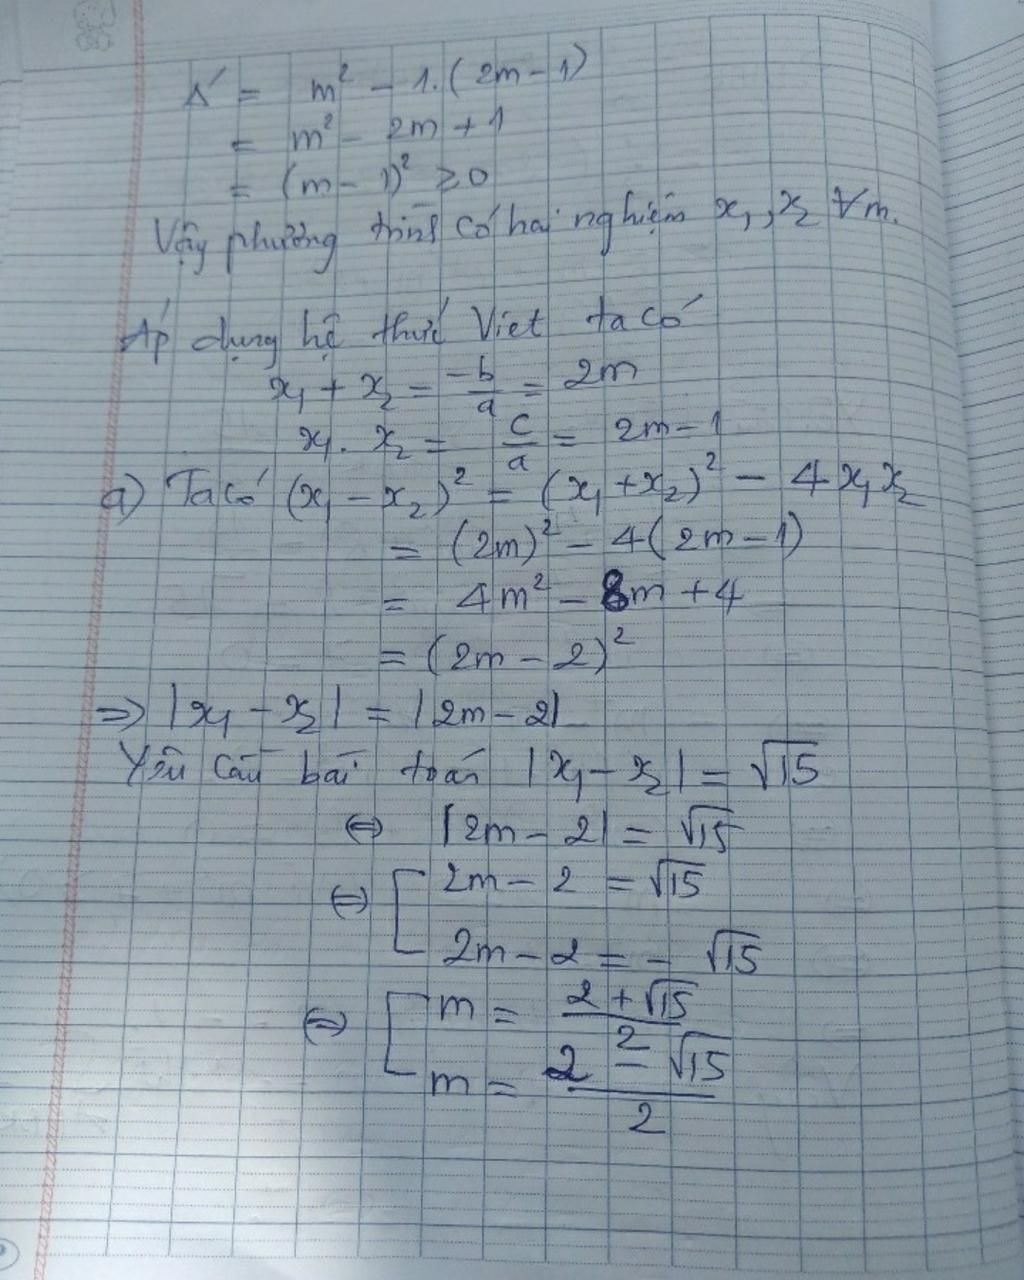 Δ' = m² - 1.(2m - 1)
= m² - 2m + 1
= (m - 1)² ≥ 0
Vậy phương trình có hai nghiệm x₁, x₂ ∀m.
Áp dụng hệ thức Viet ta có
x₁ + x₂ = -b/a = 2m
x₁ . x₂ = c/a = 2m - 1
a) Ta có (x₁ - x₂)² = (x₁ + x₂)² - 4x₁x₂
= (2m)² - 4(2m - 1)
= 4m² - 8m + 4
= (2m - 2)²
⇒ |x₁ - x₂| = |2m - 2|
Yêu cầu bài toán |x₁ - x₂| = √15
⇔ |2m - 2| = √15
⇔ [ 2m - 2 = √15
2m - 2 = - √15
⇔ [ m = (2 + √15)/2
m = (2 - √15)/2